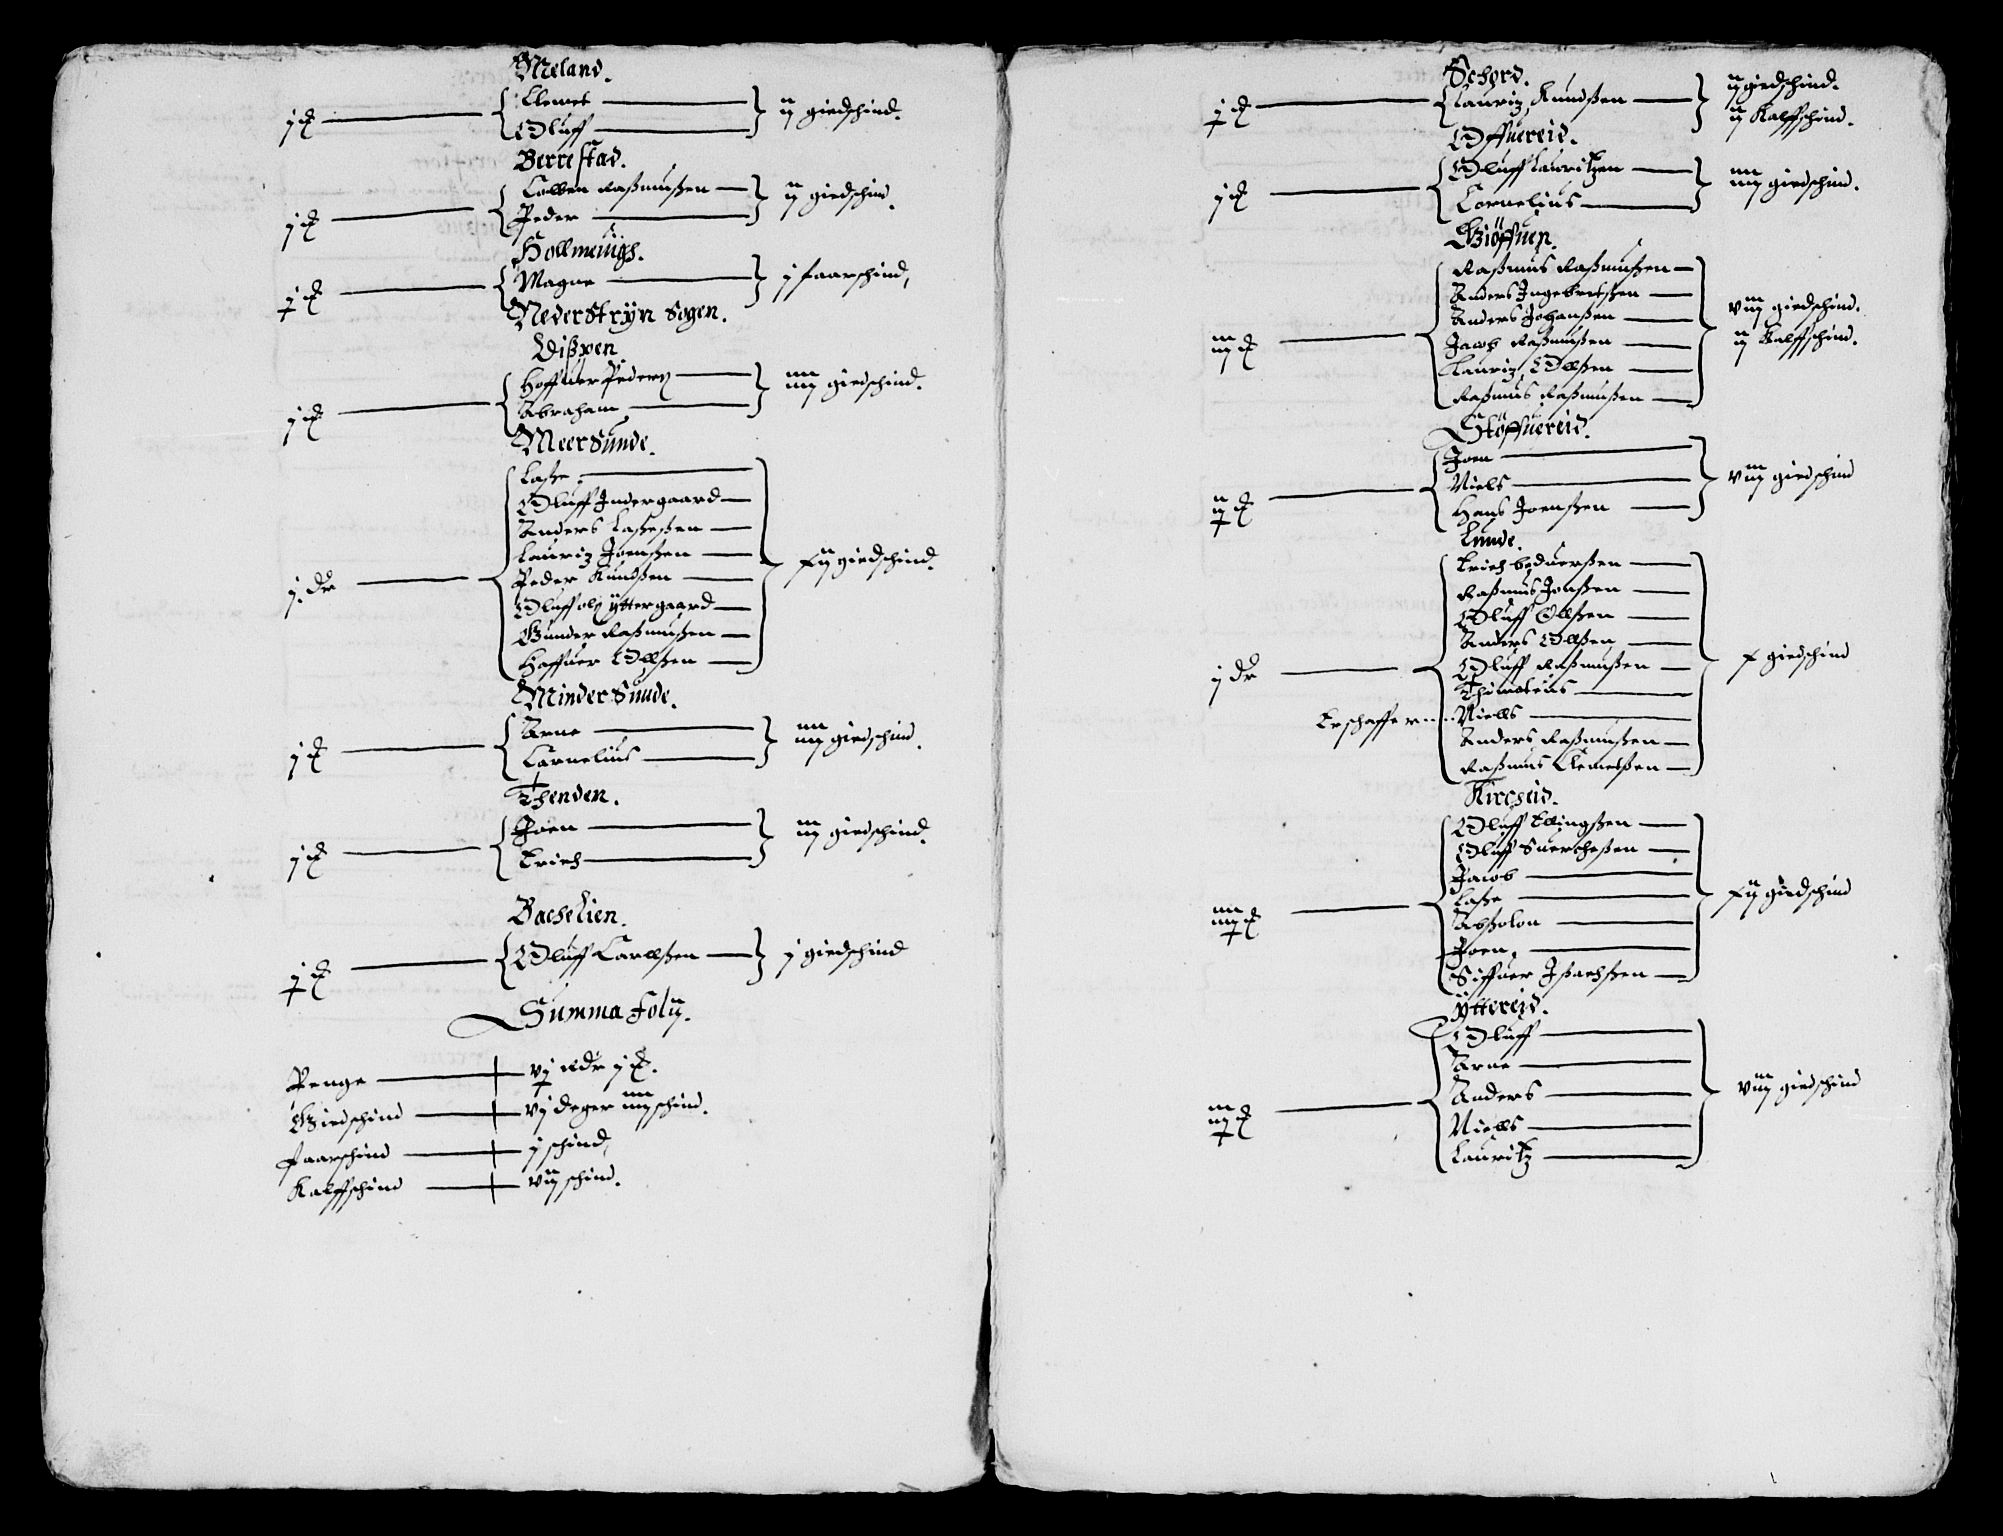 Meland.
j
Clemet
Oluff
ij giedschind.
Berrestad.
j
Colben Raßmußen
Peder
ij giedschin.
Hollmeüigs.
j
Magne
j faarschind,
Nederstryn Sogen.
Vißpen
j
Hoffuer Peders
Abraham
iiij giedschind.
Meer Sunde.
j. dr
Laße.
Oluff Indergaard
Anders Laßeßen
Lauriz Joenßen
Peder Kundßen
Oluff olß yttergaard
Gunder Raßmußen
Haffuer Ollßen
xij giedschind.
Minder Sunde.
j
Arne
Carnelius
iiij giedschind.
Thenden.
j
Joen
Erich
iiij giedschind.
Bachelien.
j
Oluff Carllßen
j giedschind
Summa foly.
Penge vj Rdr j
Giedschind vj deger iiij schind.
Faarschind j schind,
Kalffschind vij schind.
Schord.
j
Lauriz Kundßen
ij giedschind.
ij Kalffschind.
Offuereid.
j
Oluff Lauritzen
Cornelius
iiij giedschind.
Giöffuen.
iij
Raßmus Raßmußen
Anders Ingebretßen
Anders Johanßen
Jacob Raßmußen
Lauriz Ollßen
Raßmus Raßmußen
viij giedschind.
ij Kalffschind.
Stöffuereid.
ij
Joen
Niels
Hans Joenßen
viij giedschind
Lunde.
j dr
Erich boduerßen
Raßmus Jonßen
Oluff Ollßen
Anders Ollßen
Oluff Raßmußen
Thimoteus
Erschaffer Niells
Anders Raßmußen
Raßmus Clemetßen
x giedschind
Kircheid.
iiij
Oluff Ellingßen
Oluff Suercheßen
Jacob
Laße
Abßolon
Joen.
Siffuer Ißachßen
xij giedschind
yttereid.
iij
Oluff
Arne
Anders
Niells
Lauritz
viij giedschind